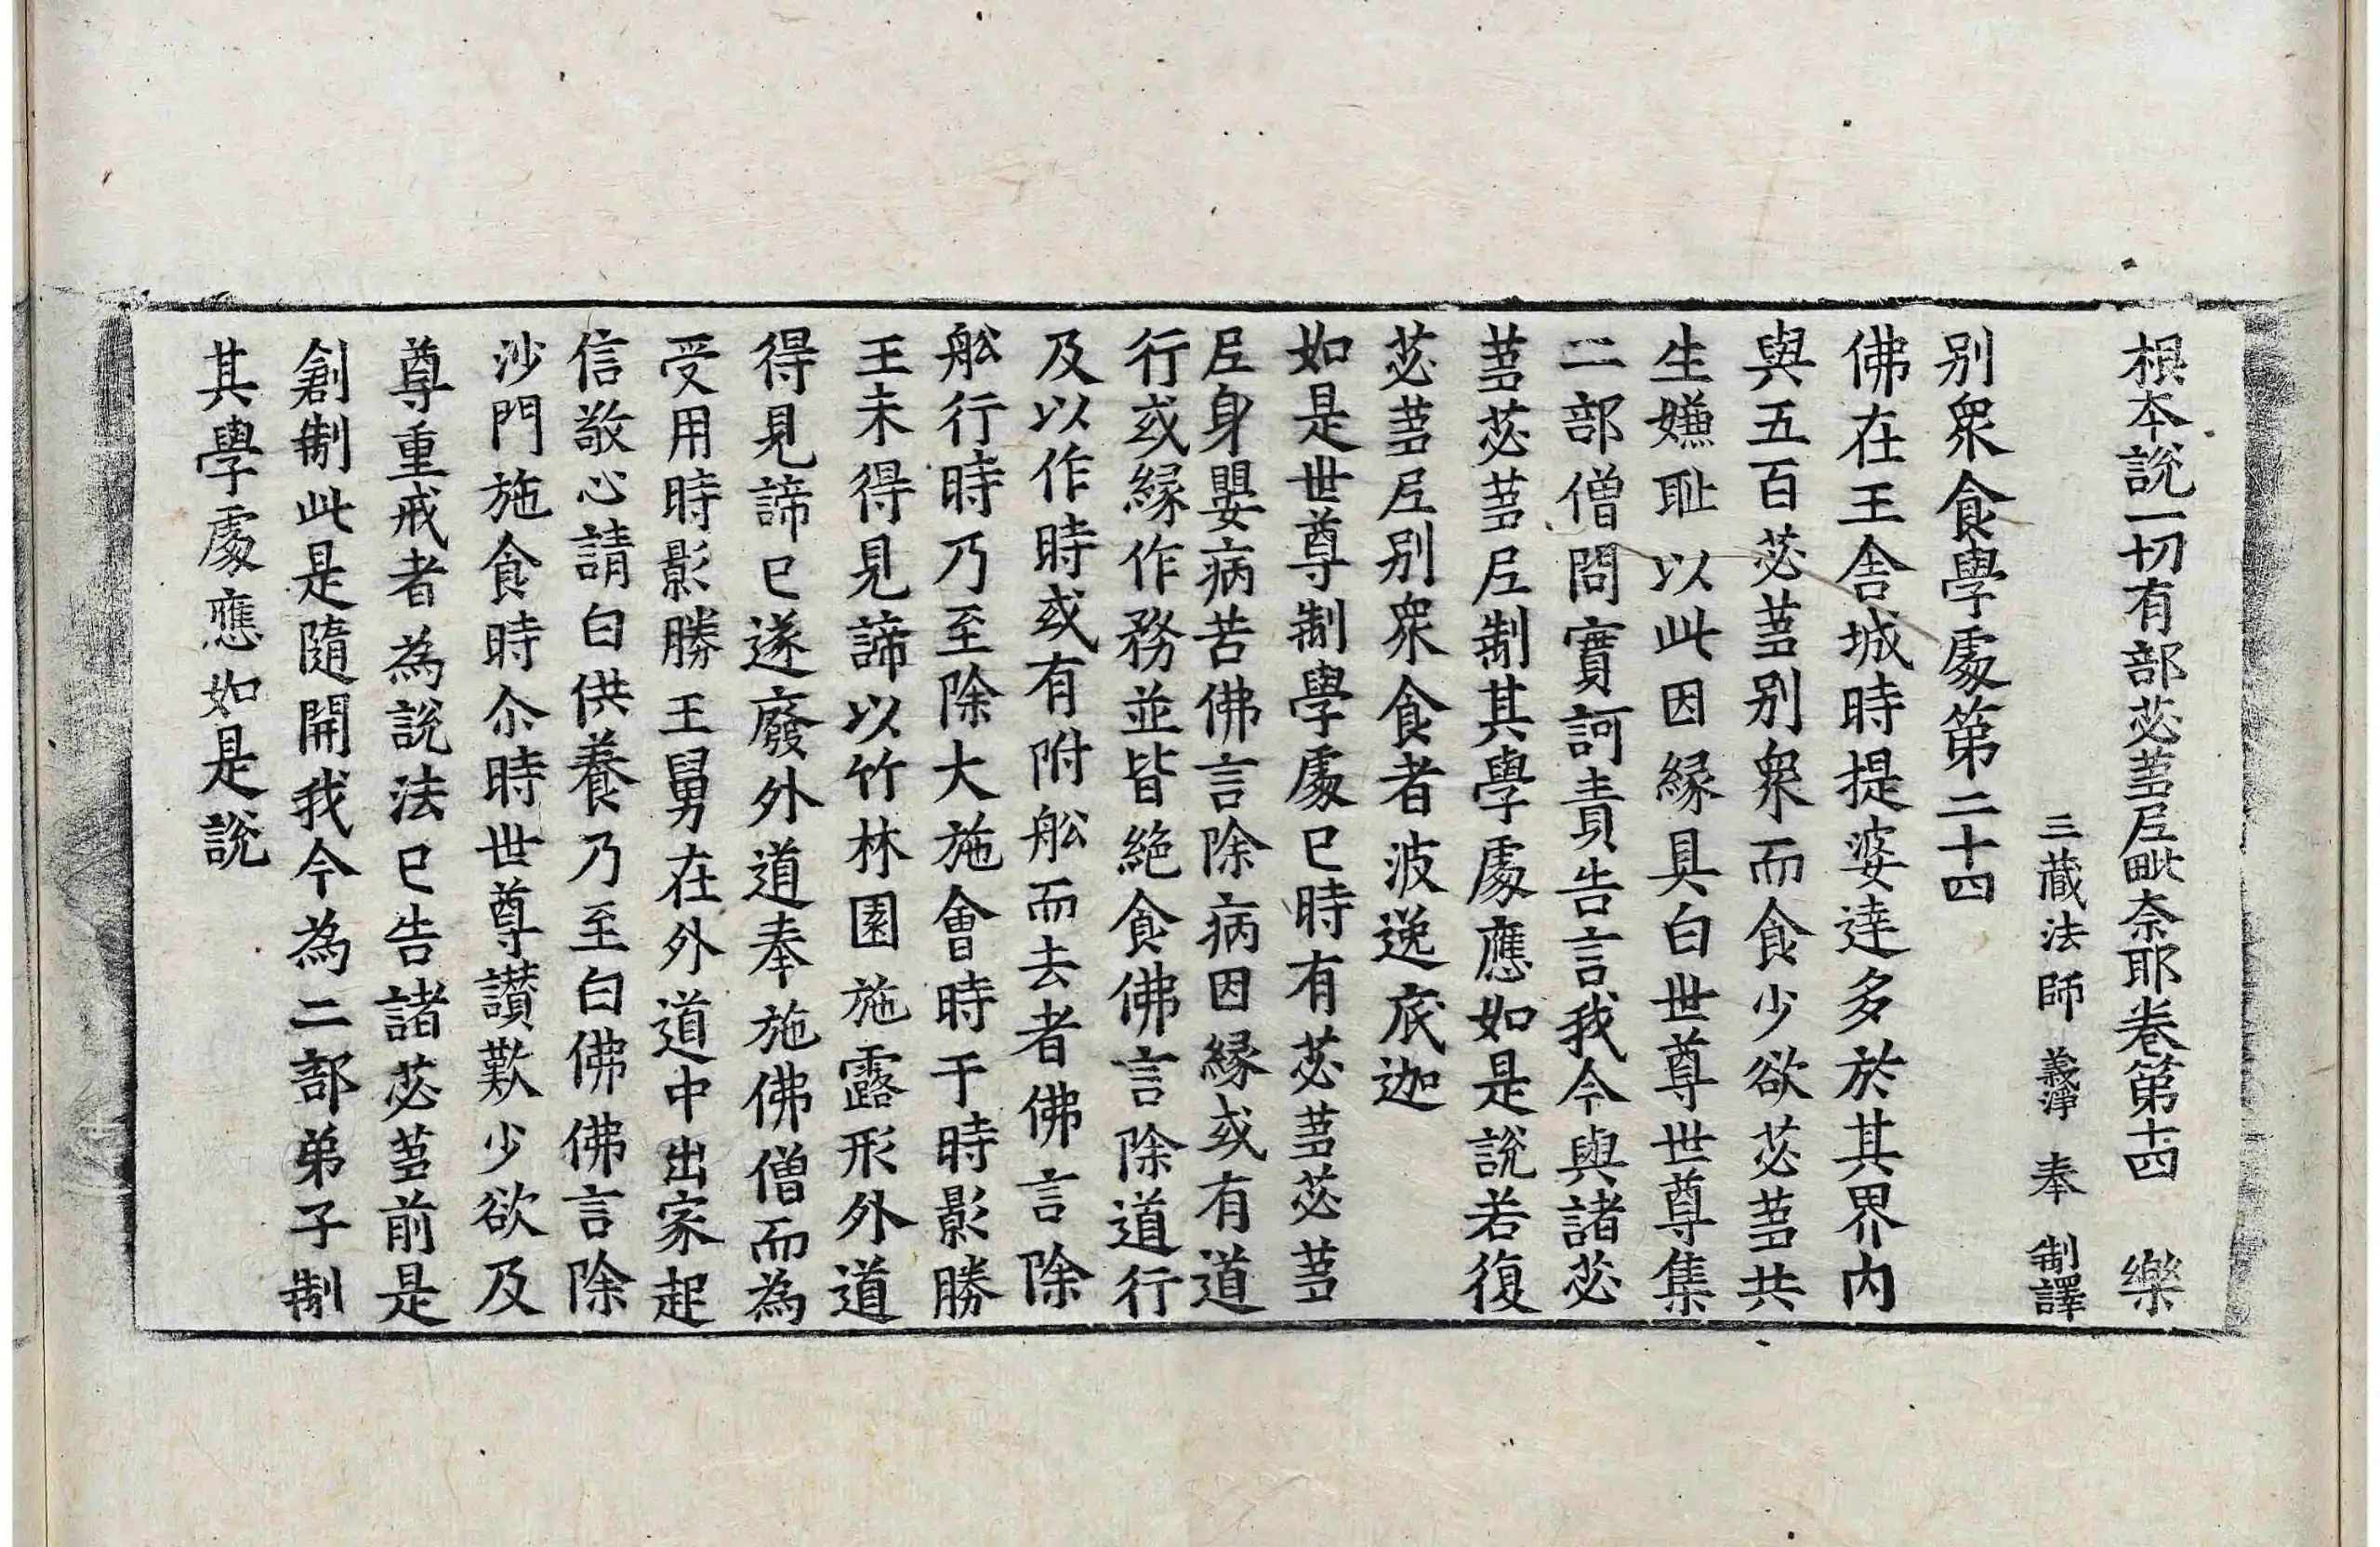 根本說一切有部苾蒭尼毗奈耶卷第十四 樂
三藏法師 義淨 奉 制譯
別衆食學處第二十四
佛在王舍城時提婆達多於其界内
與五百苾蒭別衆而食少欲苾蒭共
生嫌耻以此因緣具白世尊世尊集
二部僧問實訶責告言我今與諸苾
蒭苾蒭尼制其學處應如是說若復
苾蒭尼別衆食者波逸底迦
如是世尊制學處已時有苾蒭苾蒭
尼身嬰病苦佛言除病因緣或有道
行或緣作務並皆絕食佛言除道行
及以作時或有附舩而去者佛言除
舩行時乃至除大施會時于時影勝
王未得見諦以竹林園施露形外道
得見諦已遂廢外道奉施佛僧而為
受用時影勝王舅在外道中出家起
信敬心請白供養乃至白佛佛言除
沙門施食時尒時世尊讃歎少欲及
尊重戒者為說法已告諸苾蒭前是
創制此是隨開我今為二部弟子制
其學處應如是說